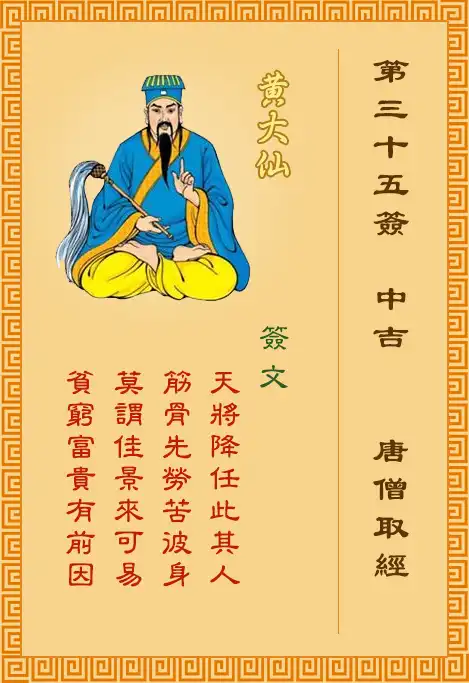 第三十五簽 中吉 唐僧取經
黄大仙
簽文
天將降任此其人
筋骨先勞苦彼身
莫謂佳景來可易
貧窮富貴有前因